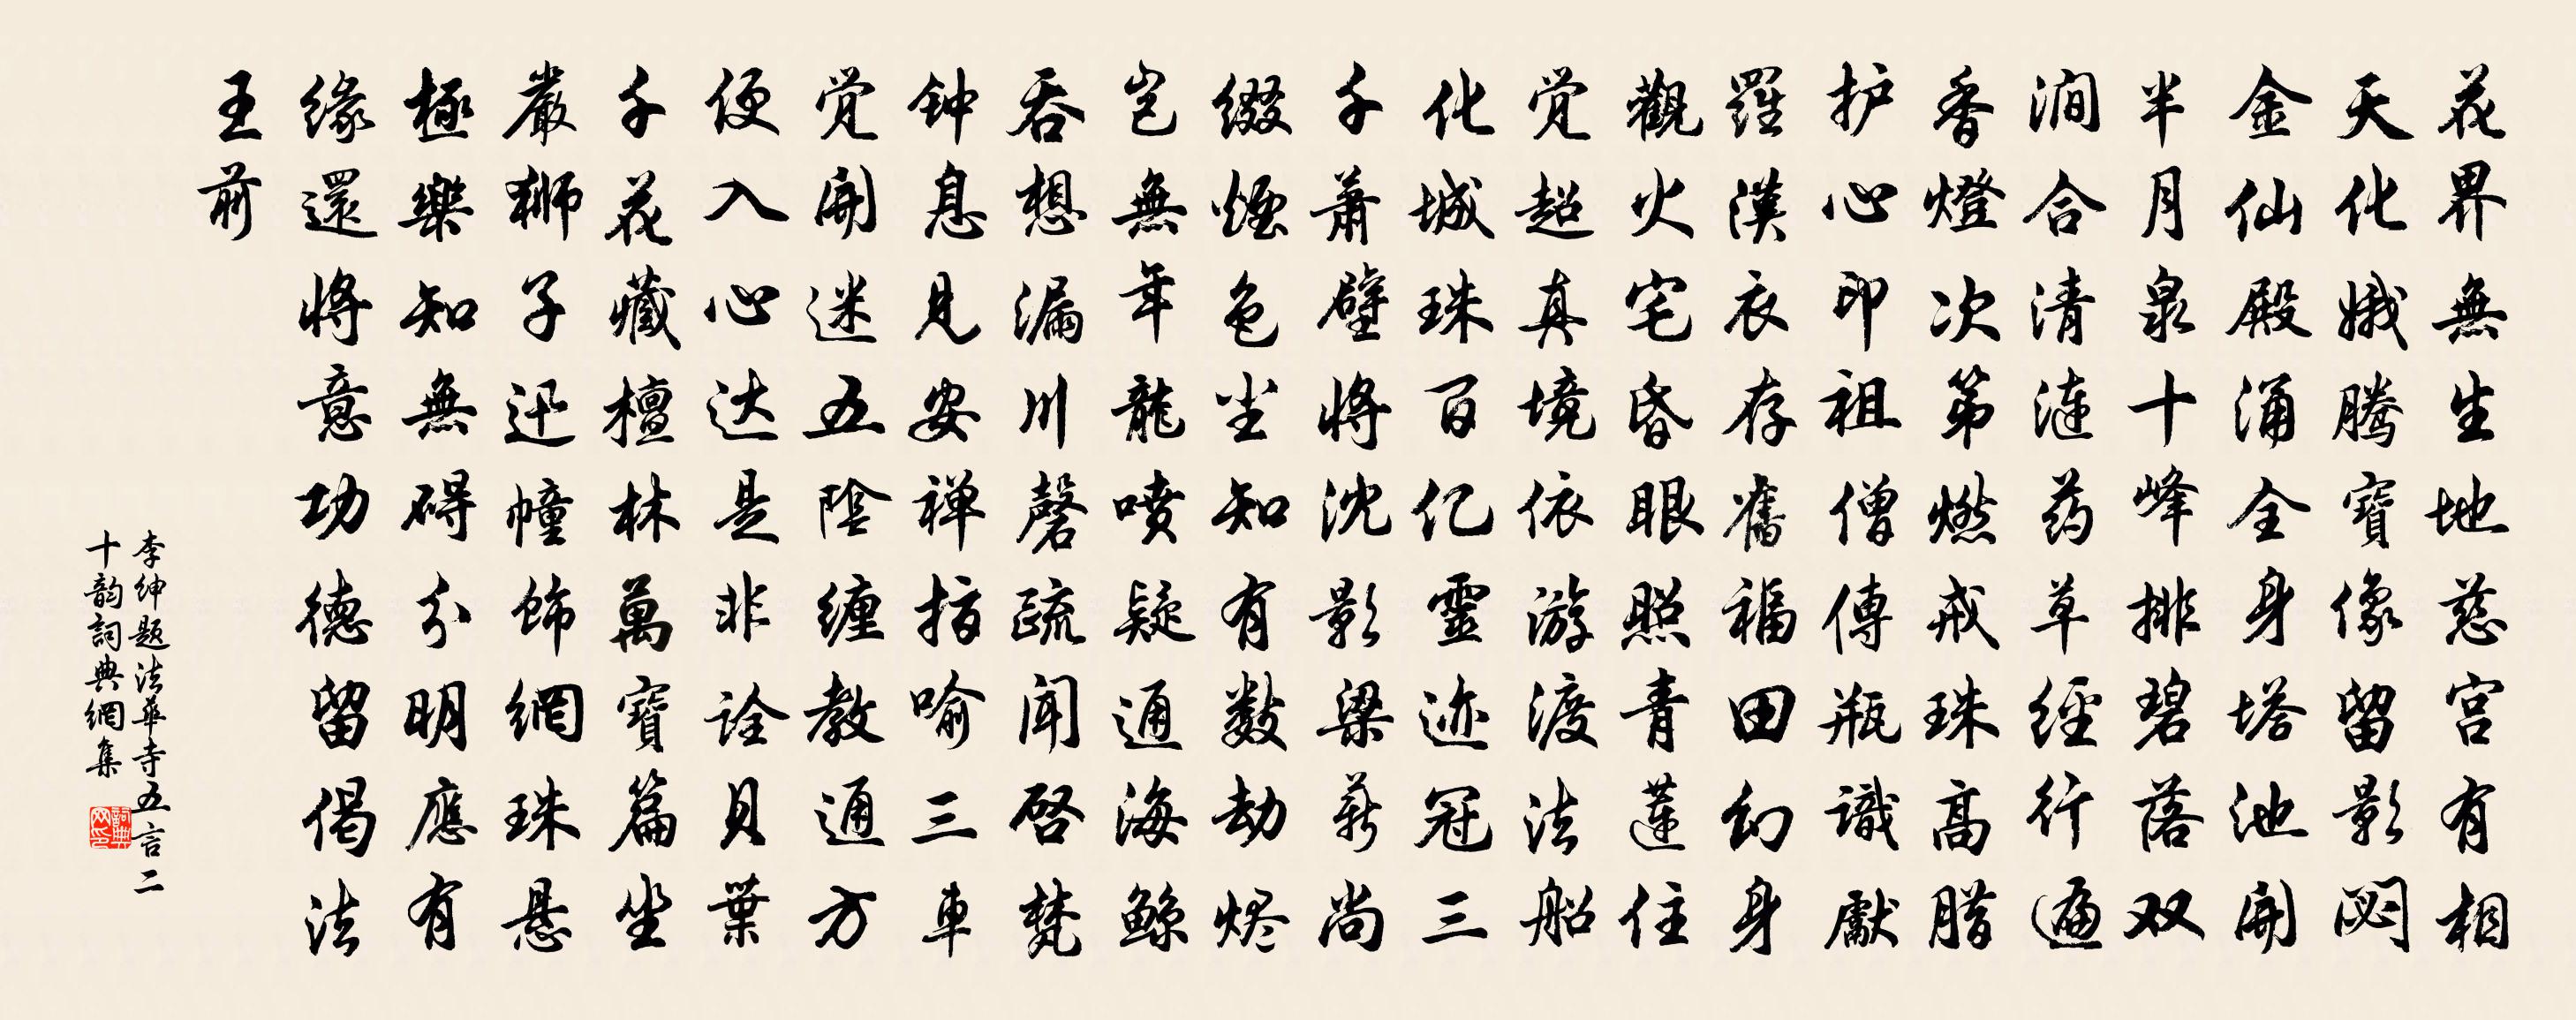 花界無生地慈宫有相
天化娥腾寶像留影閟
金仙殿涌全身塔池開
半月泉十峰排碧落双
涧合清涟药草經行遍
香燈次第燃戒珠高腊
护心印祖僧傳瓶識獻
羅漢衣存舊福田幻身
觀火宅昏眼照青蓮住
觉超真境依游渡法船
化城珠百亿靈迹冠三
千萧壁将沈影梁薪尚
缀煙色尘知有数劫烬
岂無年龍喷疑通海鲸
吞想漏川磬疏闻启梵
钟息見安禅指喻三車
觉開迷五陰缠教通方
便入心达是非诠貝葉
千花藏檀林萬寶篇坐
嚴狮子迅幢饰網珠悬
極樂知無碍分明應有
缘還将意功德留偈法
王前
李绅题法華寺五言二
十韵詞典網集